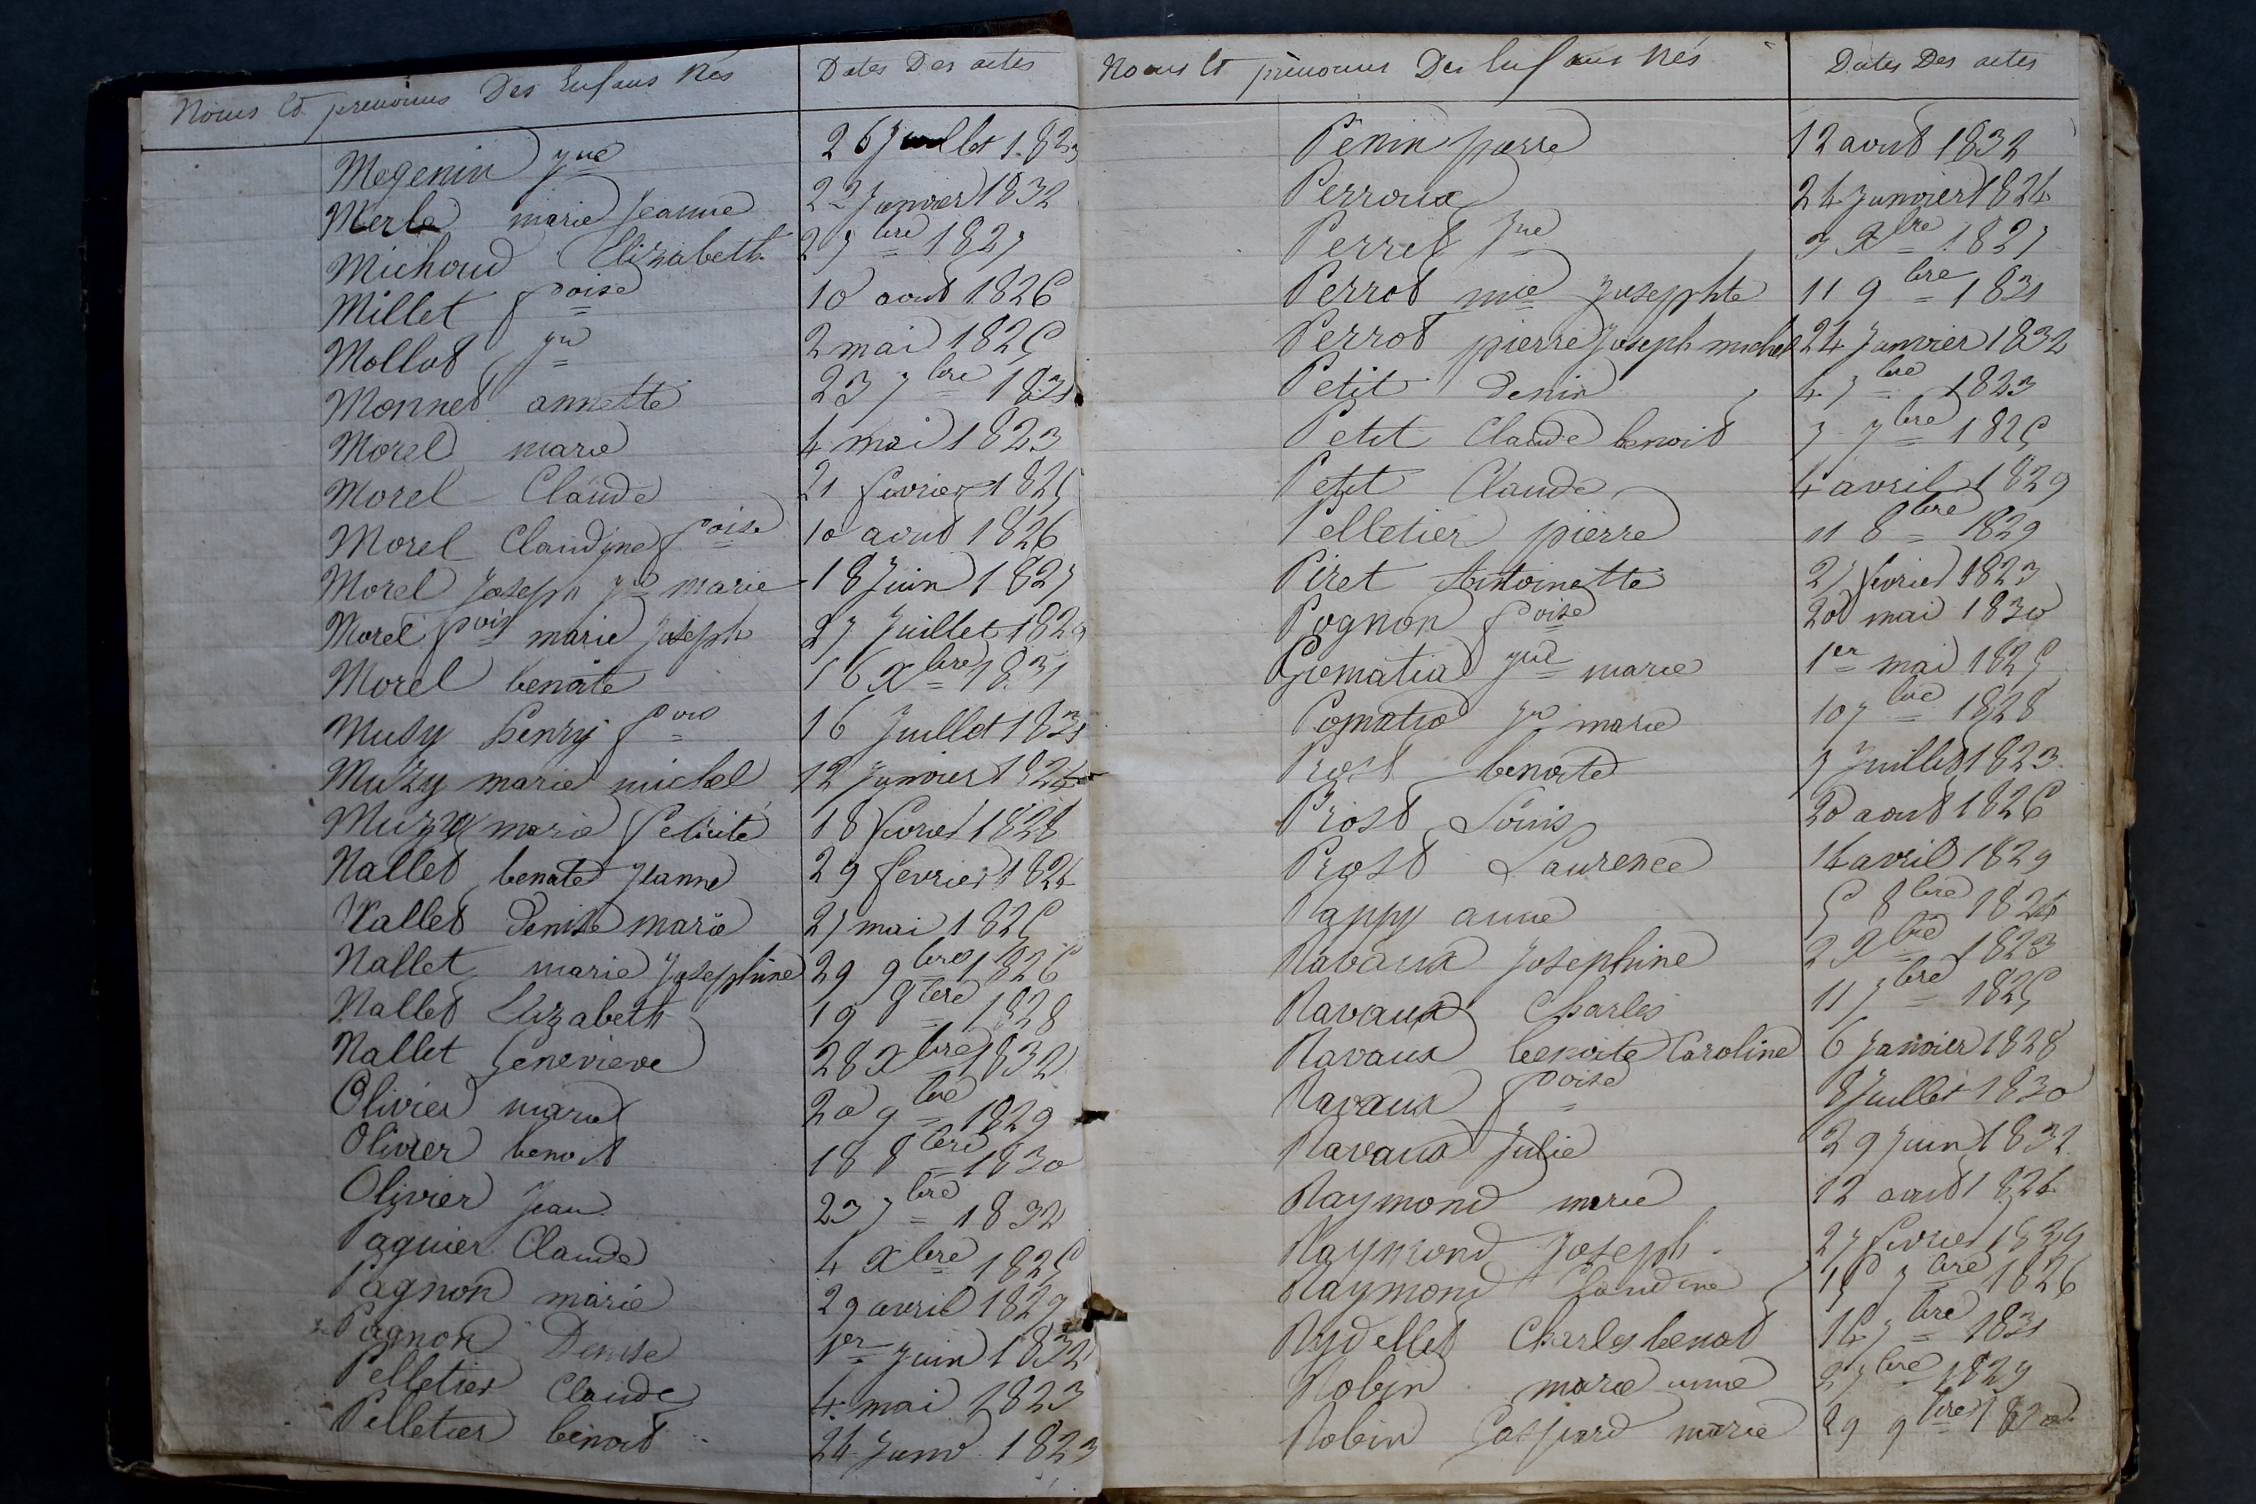 Noms Et prenoms Des Enfans Nés Dates Des actes
Megenin jne 26 Juillet 1823
Merle marie Jeanne 22 Janvier 1832
Michoud Elizabeth 27 bre 1827
Millet foise 10 aout 1826
Mollot jn 2 mai 1825
Monnet annette 23 7bre 1831
Morel marie 4 mai 1823
Morel Claude 21 fevrier 1825
Morel Claudine foise 10 aout 1826
Morel Joseph marie 18 Juin 1827
Morel fois marie Joseph 27 Juillet 1829
Morel benoite 16 Xbre 1831
Musy henry fois 16 Juillet 1821
Muzy marie michel 12 Janvier 1824
Muzy marie felicité 18 fevrier 1828
Nallet benoite Jeanne 29 fevrier 1824
Nallet denise marie 27 mai 1825
Nallet marie Josephine 29 9bre 1826
Nallet Elizabeth 19 8bre 1828
Nallet Genevieve 28 Xbre 1832
Olivier marie 20 9bre 1829
Olivier benoit 18 8bre 1830
Olivier Jean 23 7bre 1832
Paguier Claude 4 Xbre 1825
Pagnon marie 29 avril 1829
Pagnon Denise 1er Juin 1832
Pelletier Claude 4 mai 1823
Pelletier benoit 24 Janv. 1823
Noms Et prenoms Des Enfans Nés Dates Des actes
Penin pierre 12 aout 1832
Perroux 24 Janvier 1824
Perret jne 7 Xbre 1827
Perrot mie Josephte 11 9bre 1831
Perrot pierre Joseph michel 24 Janvier 1832
Petit denis 4 7bre 1823
Petit Claude benoit 7 7bre 1825
Petit Claude 4 avril 1829
Pelletier pierre 11 8bre 1829
Piret Antoinette 27 fevrier 1823
Pognon foise 20 mai 1830
jne marie 1er mai 1825
marie 10 7bre 1828
Prost benoite 7 Juillet 1823
Prost Louis 20 aout 1826
Prost Laurence 14 avril 1829
Rappy anne 5 8bre 1824
Ravaux Josephine 2 Xbre 1823
Ravaux Charles 11 7bre 1825
Ravaux benoite Caroline 6 Janvier 1828
Ravaux foise 8 Juillet 1830
Ravaux Julie 29 Juin 1832
Raymond marie 12 aout 1824
Raymond Joseph 27 fevrier 1829
Raymond Claudine 15 7bre 1826
Rydellet Charles benoit 14 7bre 1831
Robin marie anne 2 7bre 1829
Robin Gaspard marie 29 9bre